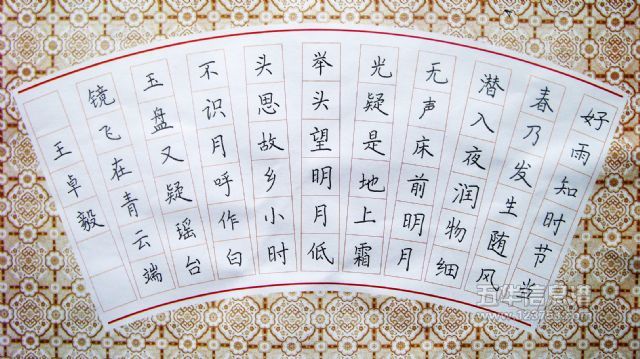 好雨知时节当
春乃发生随风
潜入夜润物细
无声床前明月
光疑是地上霜
举头望明月低
头思故乡小时
不识月呼作白
玉盘又疑瑶台
镜飞在青云端
王卓毅
五华信息港